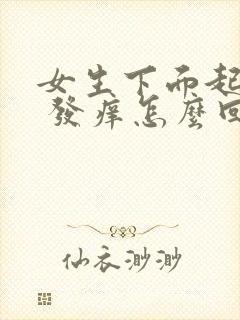 女生下而起
發痒怎麼回
仙衣渺渺